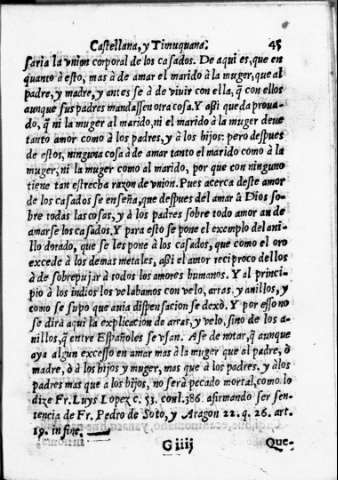 Castellana, y Timuquana. 45
saria la vniõ corporal de los casados. De aqui es, que en
quanto à esto, mas à de amar el marido à la muger, que al
padre, y madre, y antes se à de viuir con ella, q̃ con ellos
aunque sus padres mandassen otra cosa. Y aßi que da proua-
do, q̃ ni la muger al marido, ni el marido à la muger deue
tanto amor como à los padres, y à los hijos: pero despues
de estos, ninguna cosa à de amar tanto el marido como à la
muger, ni la muger como al marido, por que con ninguno
tiene tan estrecha razon de vnion. Pues acerca deste amor
de los casados se enseña, que despues del amar à Dios so-
bre todas las cosas, y à los padres sobre todo amor an de
amarse los casados. Y para esto se pone el exemplo del ani-
llo dorado, que se les pone à los casados, que como el oro
excede à los demas metales, aßi el amor reciproco dellos
à de sobrepujar à todos los amores humanos. Y al princi-
pio à los indios los velabamos con velo, arras, y anillos, y
como se supo que auia dispensacion se dexò. Y por esso no
se dirà aqui la explicacion de arras, y velo, sino de los a-
nillos, q̃ entre Españoles se vsan. A se de notar, q̃ aunque
aya algun excesso en amar mas à la muger que al padre, ò
madre, ò à los hijos y muger, mas que à los padres, y àlos
padres mas que a los hijos, no serà pecado mortal, como lo
dize Fr. Luys Lopez c. 53. conl. 386. afirmando ser sen-
tencia de Fr. Pedro de Soto, y Aragon 22. q. 26. art.
19. in fine.
G iiij Que-